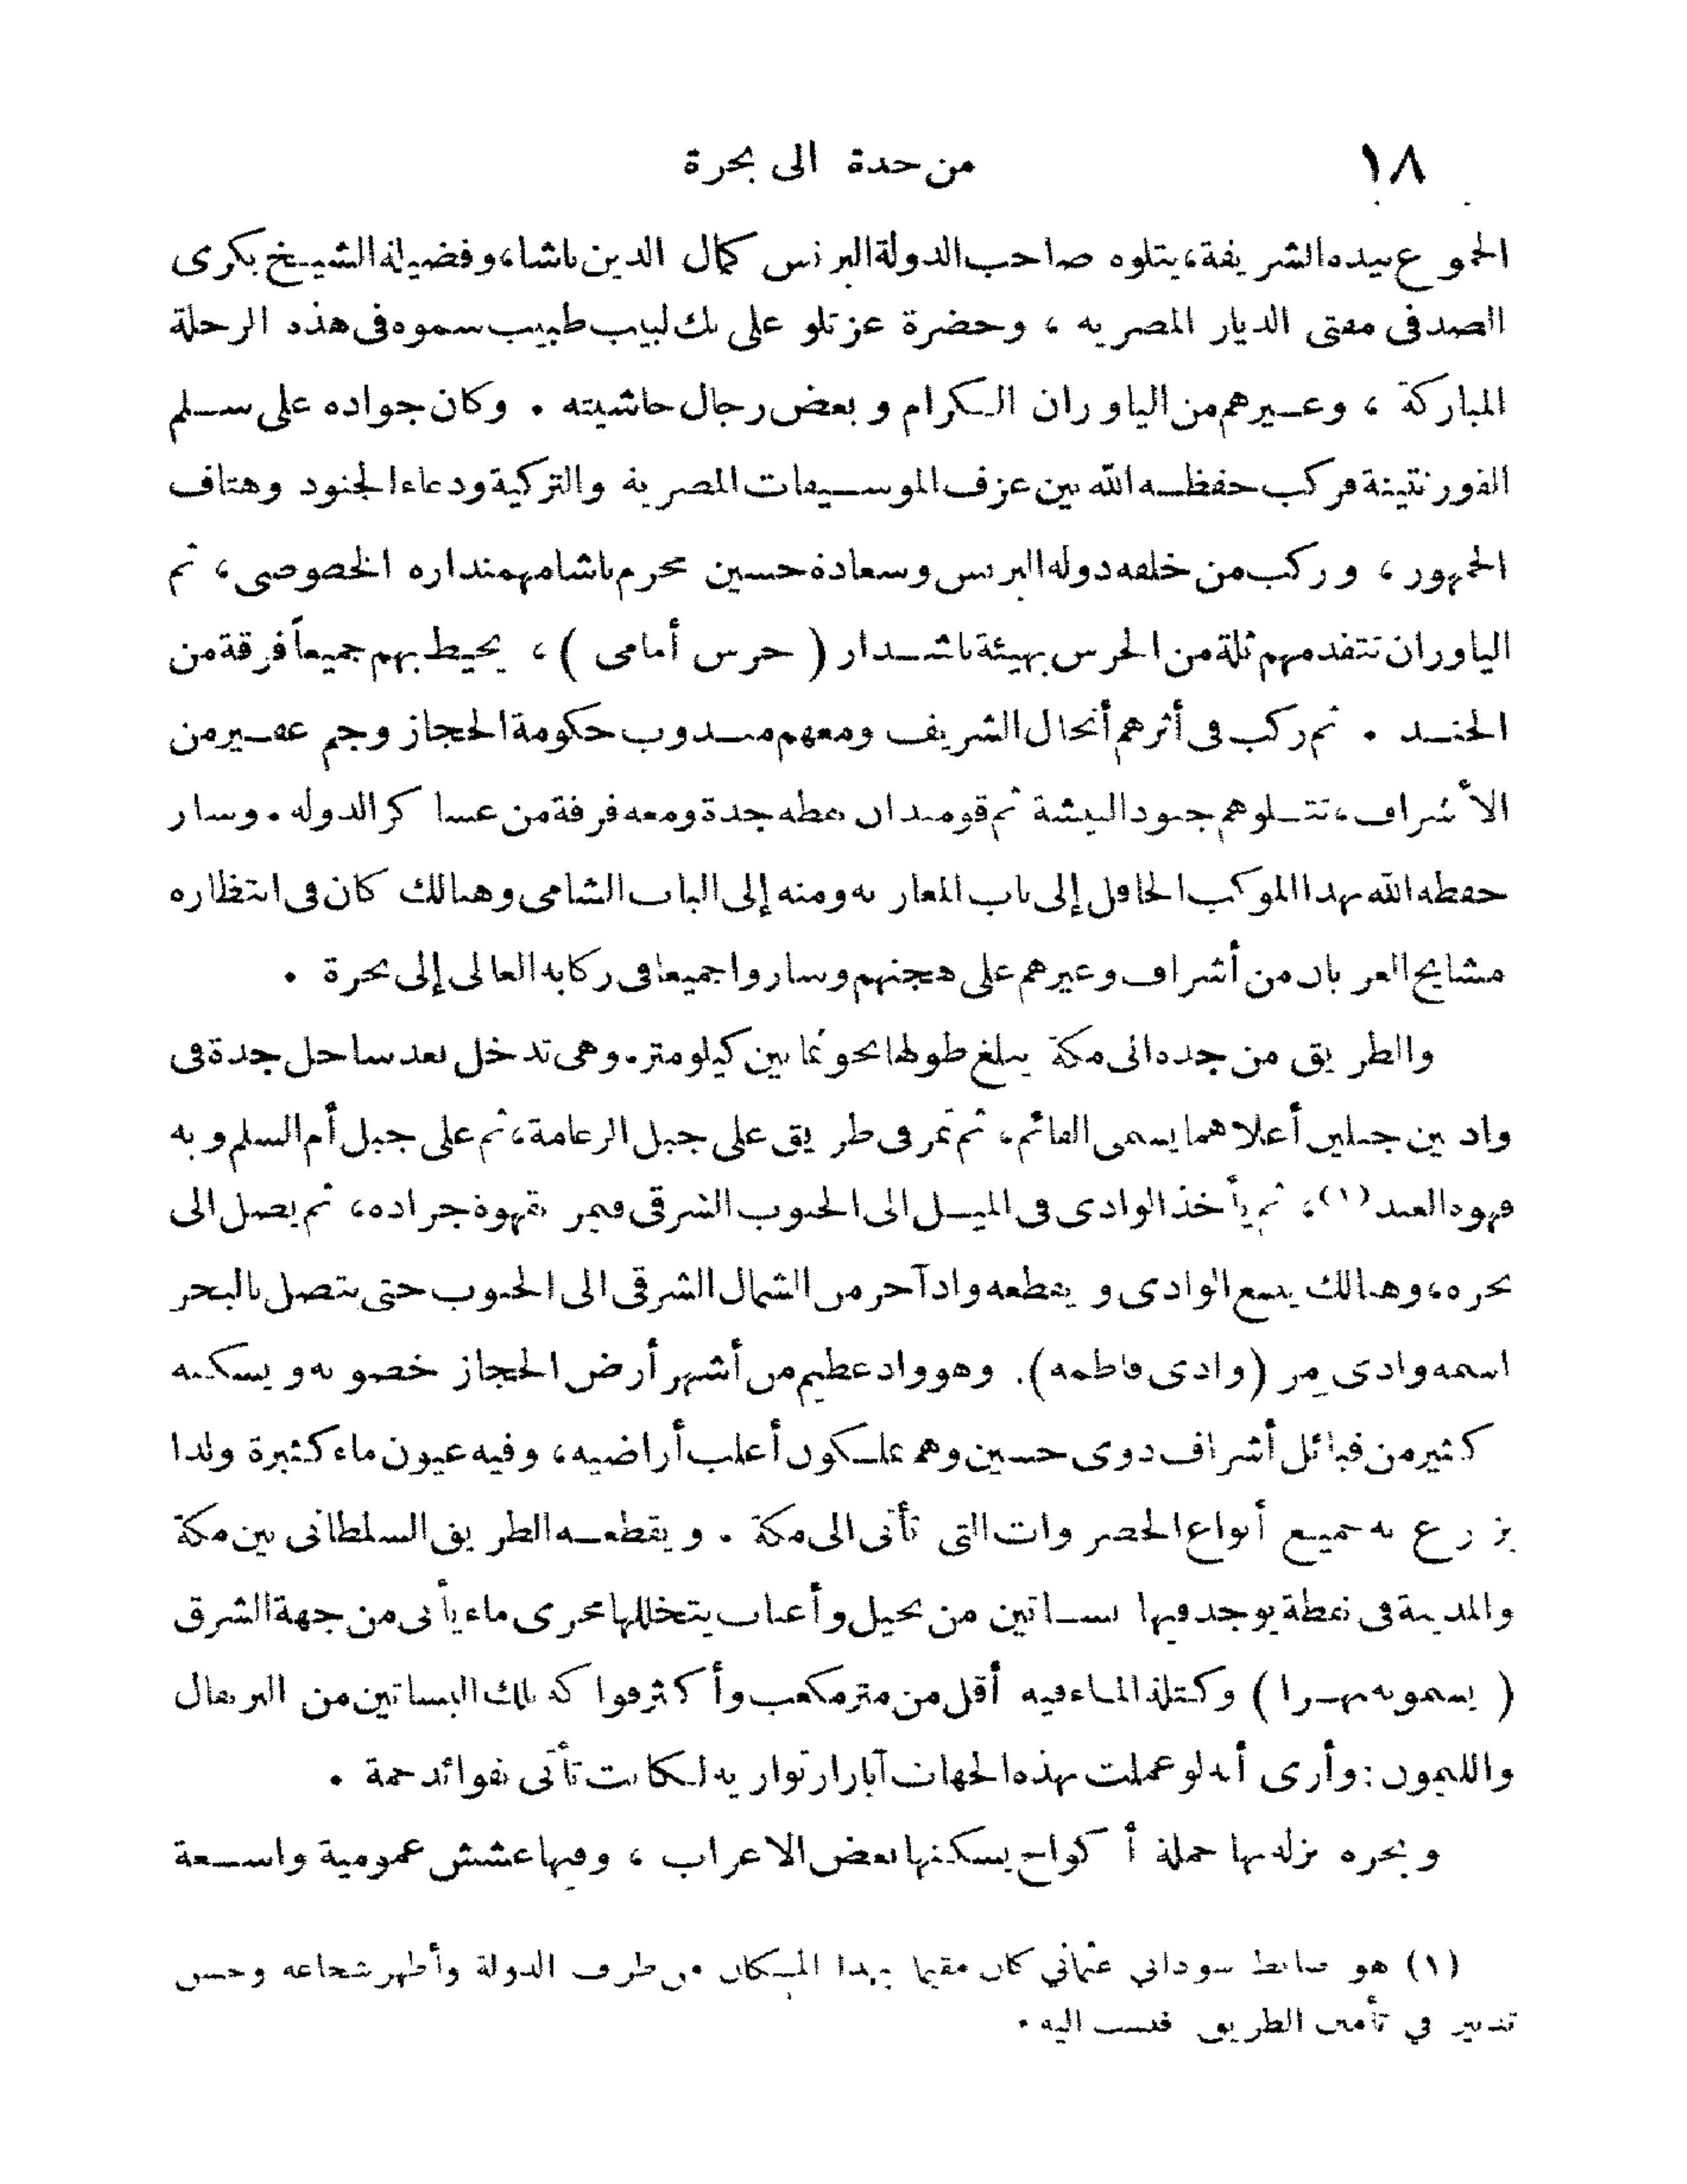 ١٨
من جدة الى بحرة
الجموع بيده الشريفة، يتلوه صاحب الدولة البرنس كمال الدين باشا، وفضيلة الشيخ بكرى
الصدفى مفتى الديار المصرية ، وحضرة عزتلو على بك لبيب طبيب سموه فى هذه الرحلة
المباركة ، وغيرهم من الياوران الكرام وبعض رجال حاشيته . وكان جواده على سلم
القورنتينة فركب حفظه الله بين عزف الموسيقات المصرية والتركية ودعاء الجنود وهتاف
الجمهور ، وركب من خلفه دولة البرنس وسعادة حسين محرم باشا مهمنداره الخصوصى ، ثم
الياوران تتقدمهم ثلة من الحرس بهيئة باشدار ( حرس أمامى ) ، يحيط بهم جميعاً فرقة من
الجند . ثم ركب فى أثرهم أنجال الشريف ومعهم مندوب حكومة الحجاز وجم غفير من
الأشراف ، تتلوهم جنود البيشة ثم قومندان نقطة جدة ومعه فرقة من عساكر الدولة . وسار
حفظه الله بهذا الموكب الحافل إلى باب المغاربة ومنه إلى الباب الشامى وهنالك كان فى انتظاره
مشايخ العربان من أشراف وغيرهم على هجنهم وساروا جميعا فى ركابه العالى إلى بحرة .
والطريق من جدة الى مكة يبلغ طولها نحو ثمانين كيلومتر . وهى تدخل بعد ساحل جدة فى
واد بين جبلين أعلاهما يسمى القائم ، ثم تمر فى طريق على جبل الرغامة ، ثم على جبل أم السلم وبه
قهوة العبد (١) ، ثم يأخذ الوادى فى الميل الى الجنوب الشرقى فيمر بقهوة جراده ، ثم يصل الى
بحرة ، وهنالك يتسع الوادى ويقطعه واد آخر من الشمال الشرقى الى الجنوب حتى يتصل بالبحر
اسمه وادى مِر (وادى فاطمة) . وهو واد عظيم من أشهر أرض الحجاز خصوبة ويسكنه
كثير من قبائل أشراف ذوى حسين وهم يملكون أغلب أراضيه ، وفيه عيون ماء كثيرة ولذا
يزرع به جميع أنواع الخضروات التى تأتى الى مكة . ويقطعه الطريق السلطانى بين مكة
والمدينة فى نقطة يوجد فيها بساتين من نخيل وأعناب يتخللها مجرى ماء يأتى من جهة الشرق
( يسمونه نهرا ) وكتلة الماء فيه أقل من متر مكعب وأكثر فواكه تلك البساتين من البرتقال
والليمون : وأرى أنه لو عملت بهذه الجهات آبار ارتوازية لكانت تأتى بفوائد جمة .
وبحرة نزلة بها جملة أكواخ يسكنها بعض الاعراب ، وفيها عشش عمومية واسعة
(١) هو ضابط سوداني عثماني كان مقيما بهذا المكان من طرف الدولة وأظهر شجاعة وحسن
تدبير في تأمين الطريق فنسب اليه .